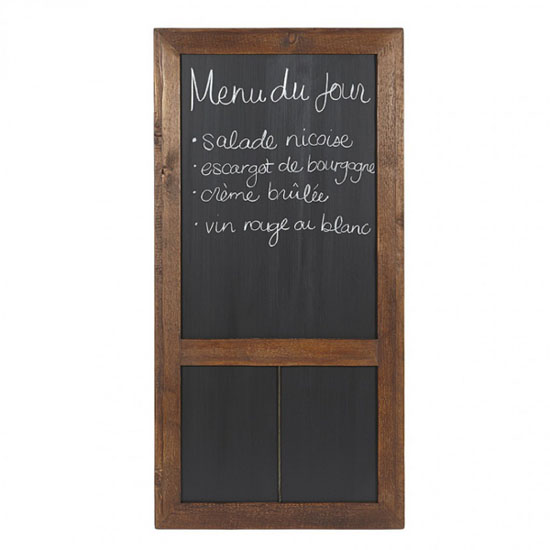 Menu du jour
• salade nicoise
• escargot de bourgogne
• crème brûlée
• vin rouge ou blanc